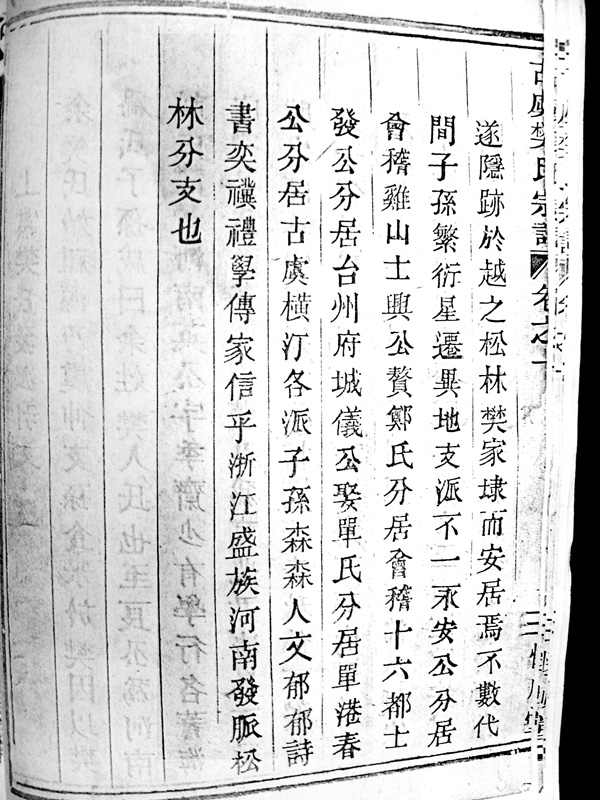 古虞樊氏宗譜 卷之一
遂隱跡於越之松林樊家埭而安居焉不數代
間子孫繁衍星遷異地支派不一永安公分居
會稽雞山士興公贅鄭氏分居會稽十六都士
發公分居台州府城儀公娶單氏分居單港春
公分居古虞橫汀各派子孫森森人文郁郁詩
書奕禩禮學傳家信乎浙江盛族河南發脈松
林分支也